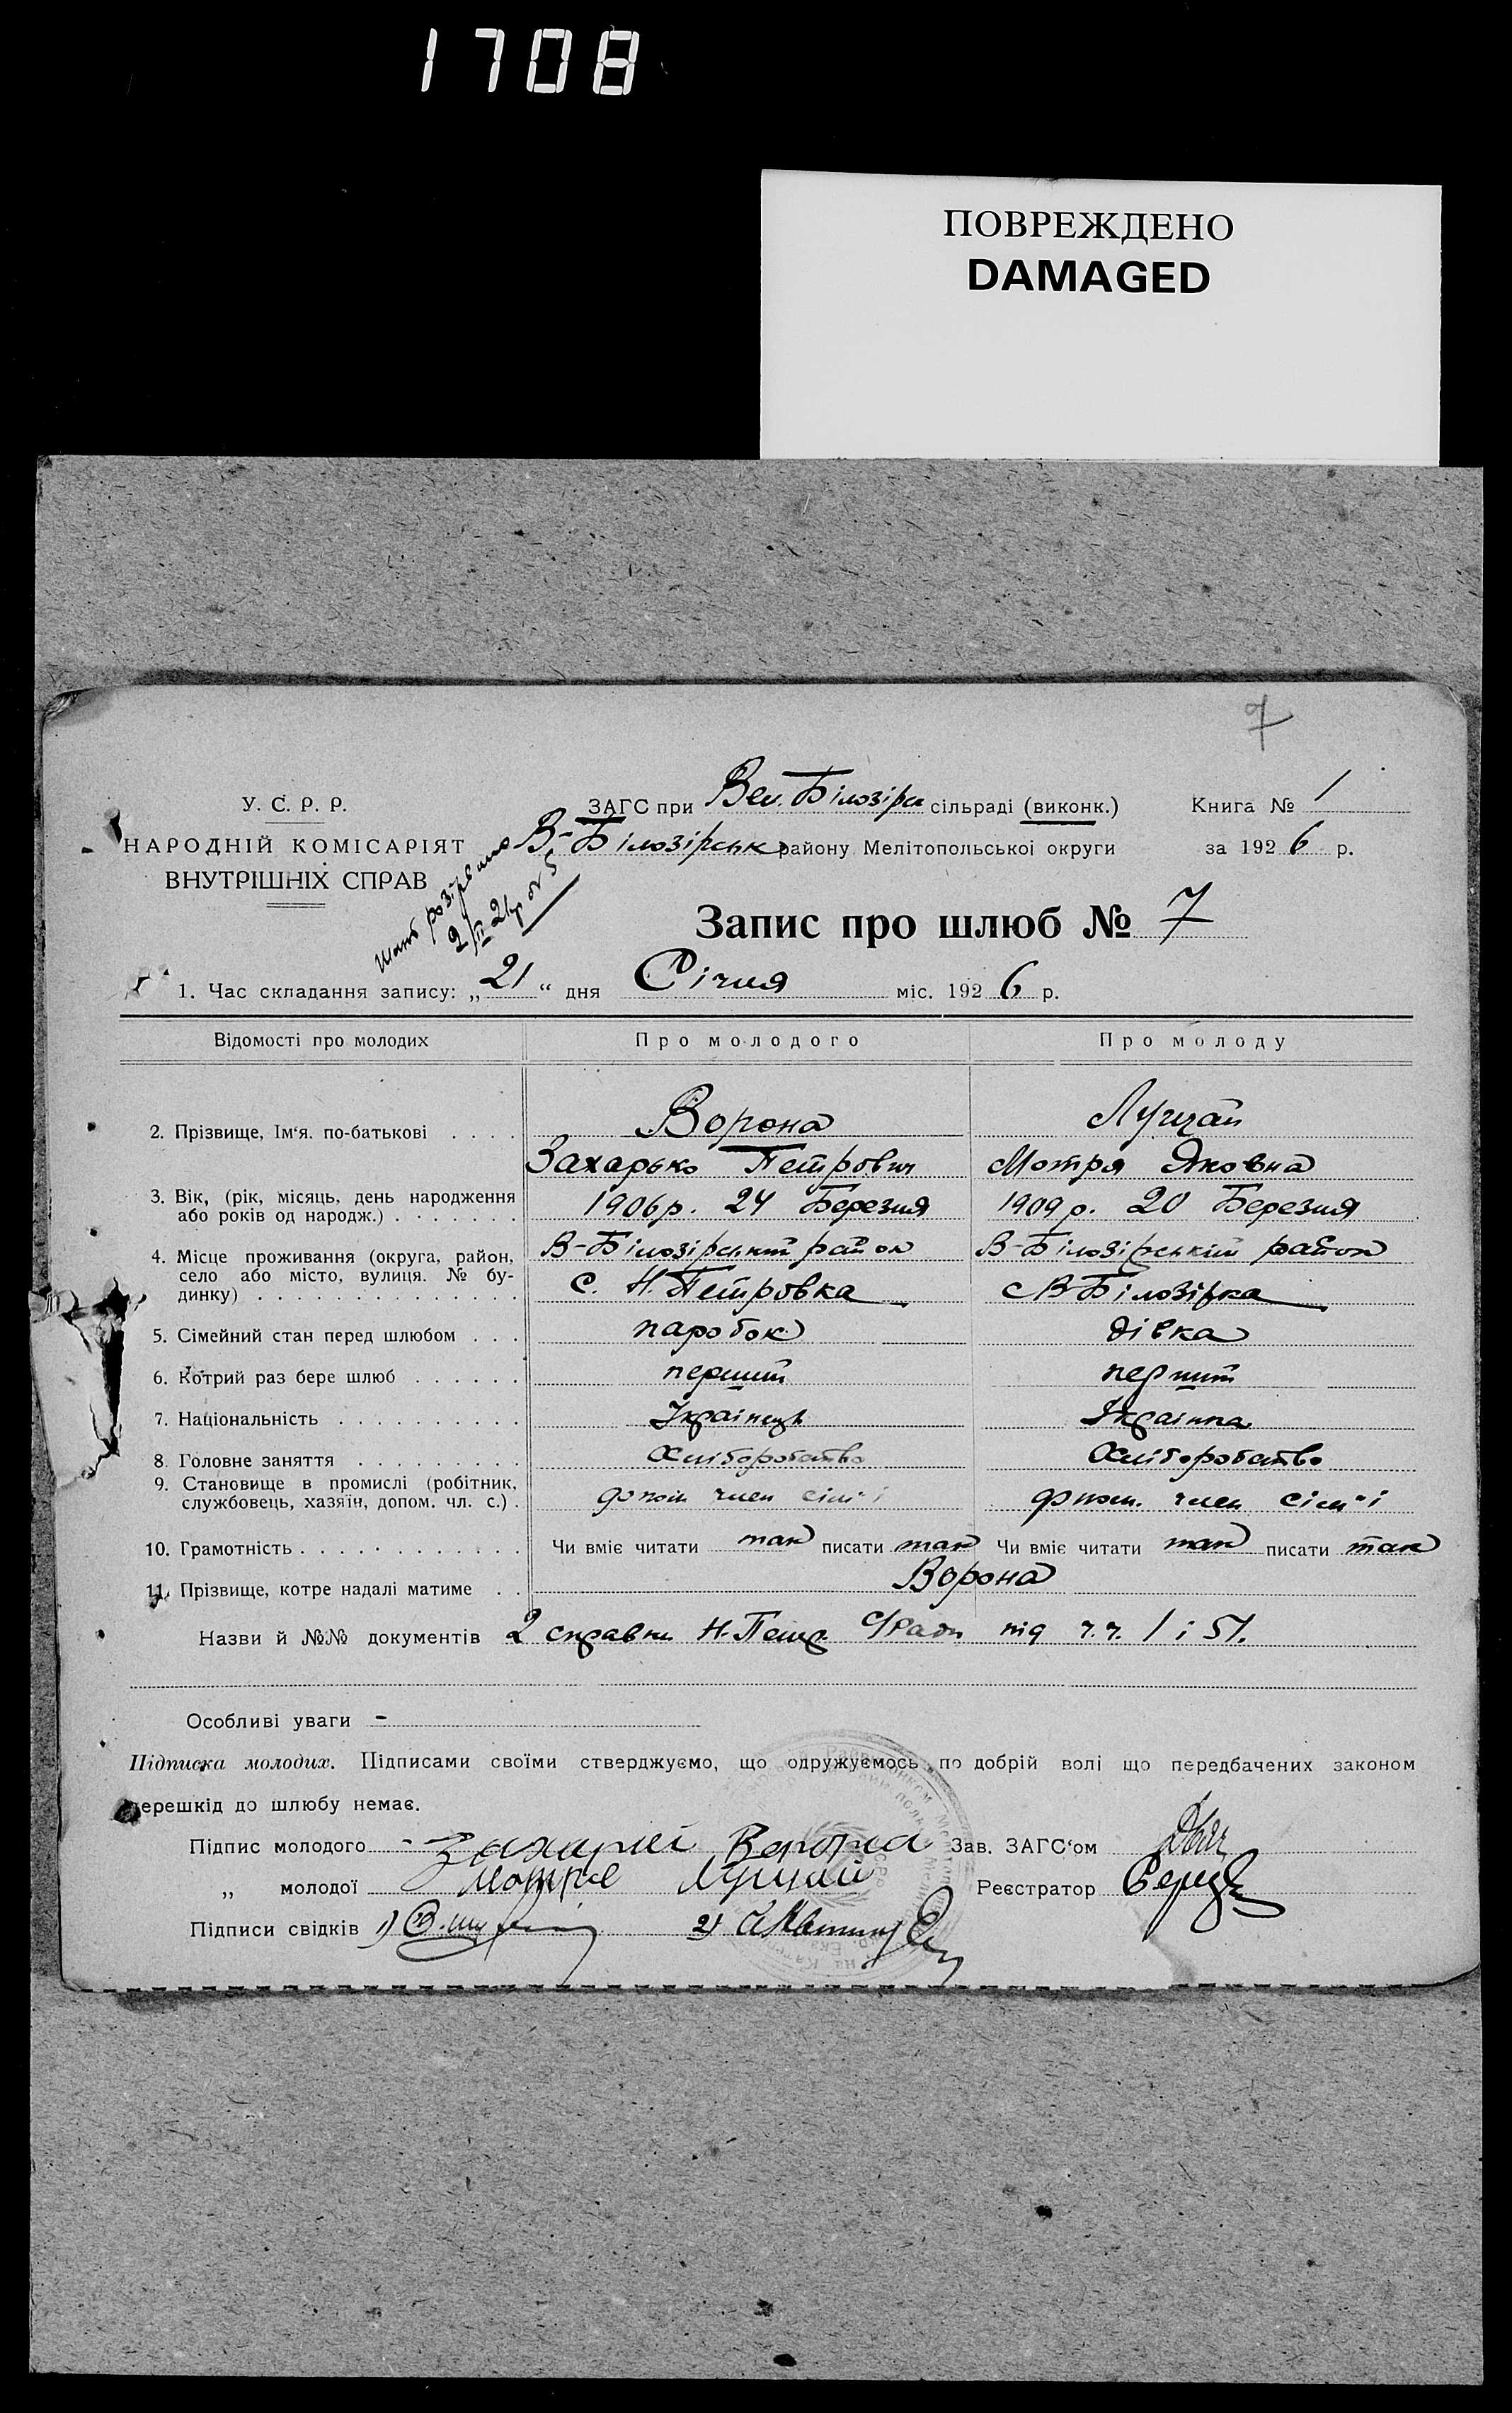 1708
ПОВРЕЖДЕНО
DAMAGED
7
У. С. Р. Р.
НАРОДНІЙ КОМІСАРІЯТ
ВНУТРІШНІХ СПРАВ
ЗАГС при Вел. Білозірск сільраді (виконк.)
Книга № 1
В-Білозірськ району Мелітопольської округи
за 1926 р.
Запис про шлюб № 7
1. Час складання запису: „21“ дня Січня міс. 1926 р.
Відомості про молодих Про молодого Про молоду
2. Прізвище, Ім'я. по-батькові . . . . Ворона Луцай
Захарько Петрович Мотря Яковна
3. Вік, (рік, місяць, день народження
або років од народж.) . . . . . . . 1906 р. 24 Березня 1909 р. 20 Березня
4. Місце проживання (округа, район, В-Білозірський район В-Білозірський район
село або місто, вулиця. № бу-
динку) . . . . . . . . . . . . . . с. Н. Петровка с В-Білозірка
5. Сімейний стан перед шлюбом . . . паробок дівка
6. Котрий раз бере шлюб . . . . . . перший перший
7. Національність . . . . . . . . . . Українець Українка
8. Головне заняття . . . . . . . . . Хліборобство Хліборобство
9. Становище в промислі (робітник,
службовець, хазяїн, допом. чл. с.) . допом член сім'ї допом. член сім'ї
10. Грамотність . . . . . . . . . . . . Чи вміє читати так писати так Чи вміє читати так писати так
11. Прізвище, котре надалі матиме . . Ворона
Назви й №№ документів 2 справки Н-Петр. С/Ради під ч.ч. 1 і 51.
Особливі уваги -
Підписка молодих. Підписами своїми стверджуємо, що одружуємось по добрій волі що передбачених законом
перешкід до шлюбу немає.
Підпис молодого Захарій Ворона Зав. ЗАГС'ом
„ молодої Мотря Луцай Реєстратор
Підписи свідків 1) 2)